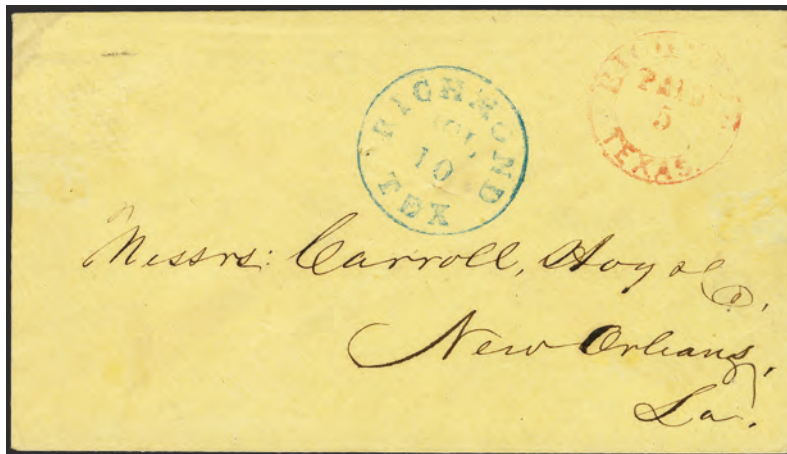 RICHMOND
JUL
10
TEX
PAID
5
TEXAS.
Messrs: Carroll, Hoy & Co,
New Orleans,
La.